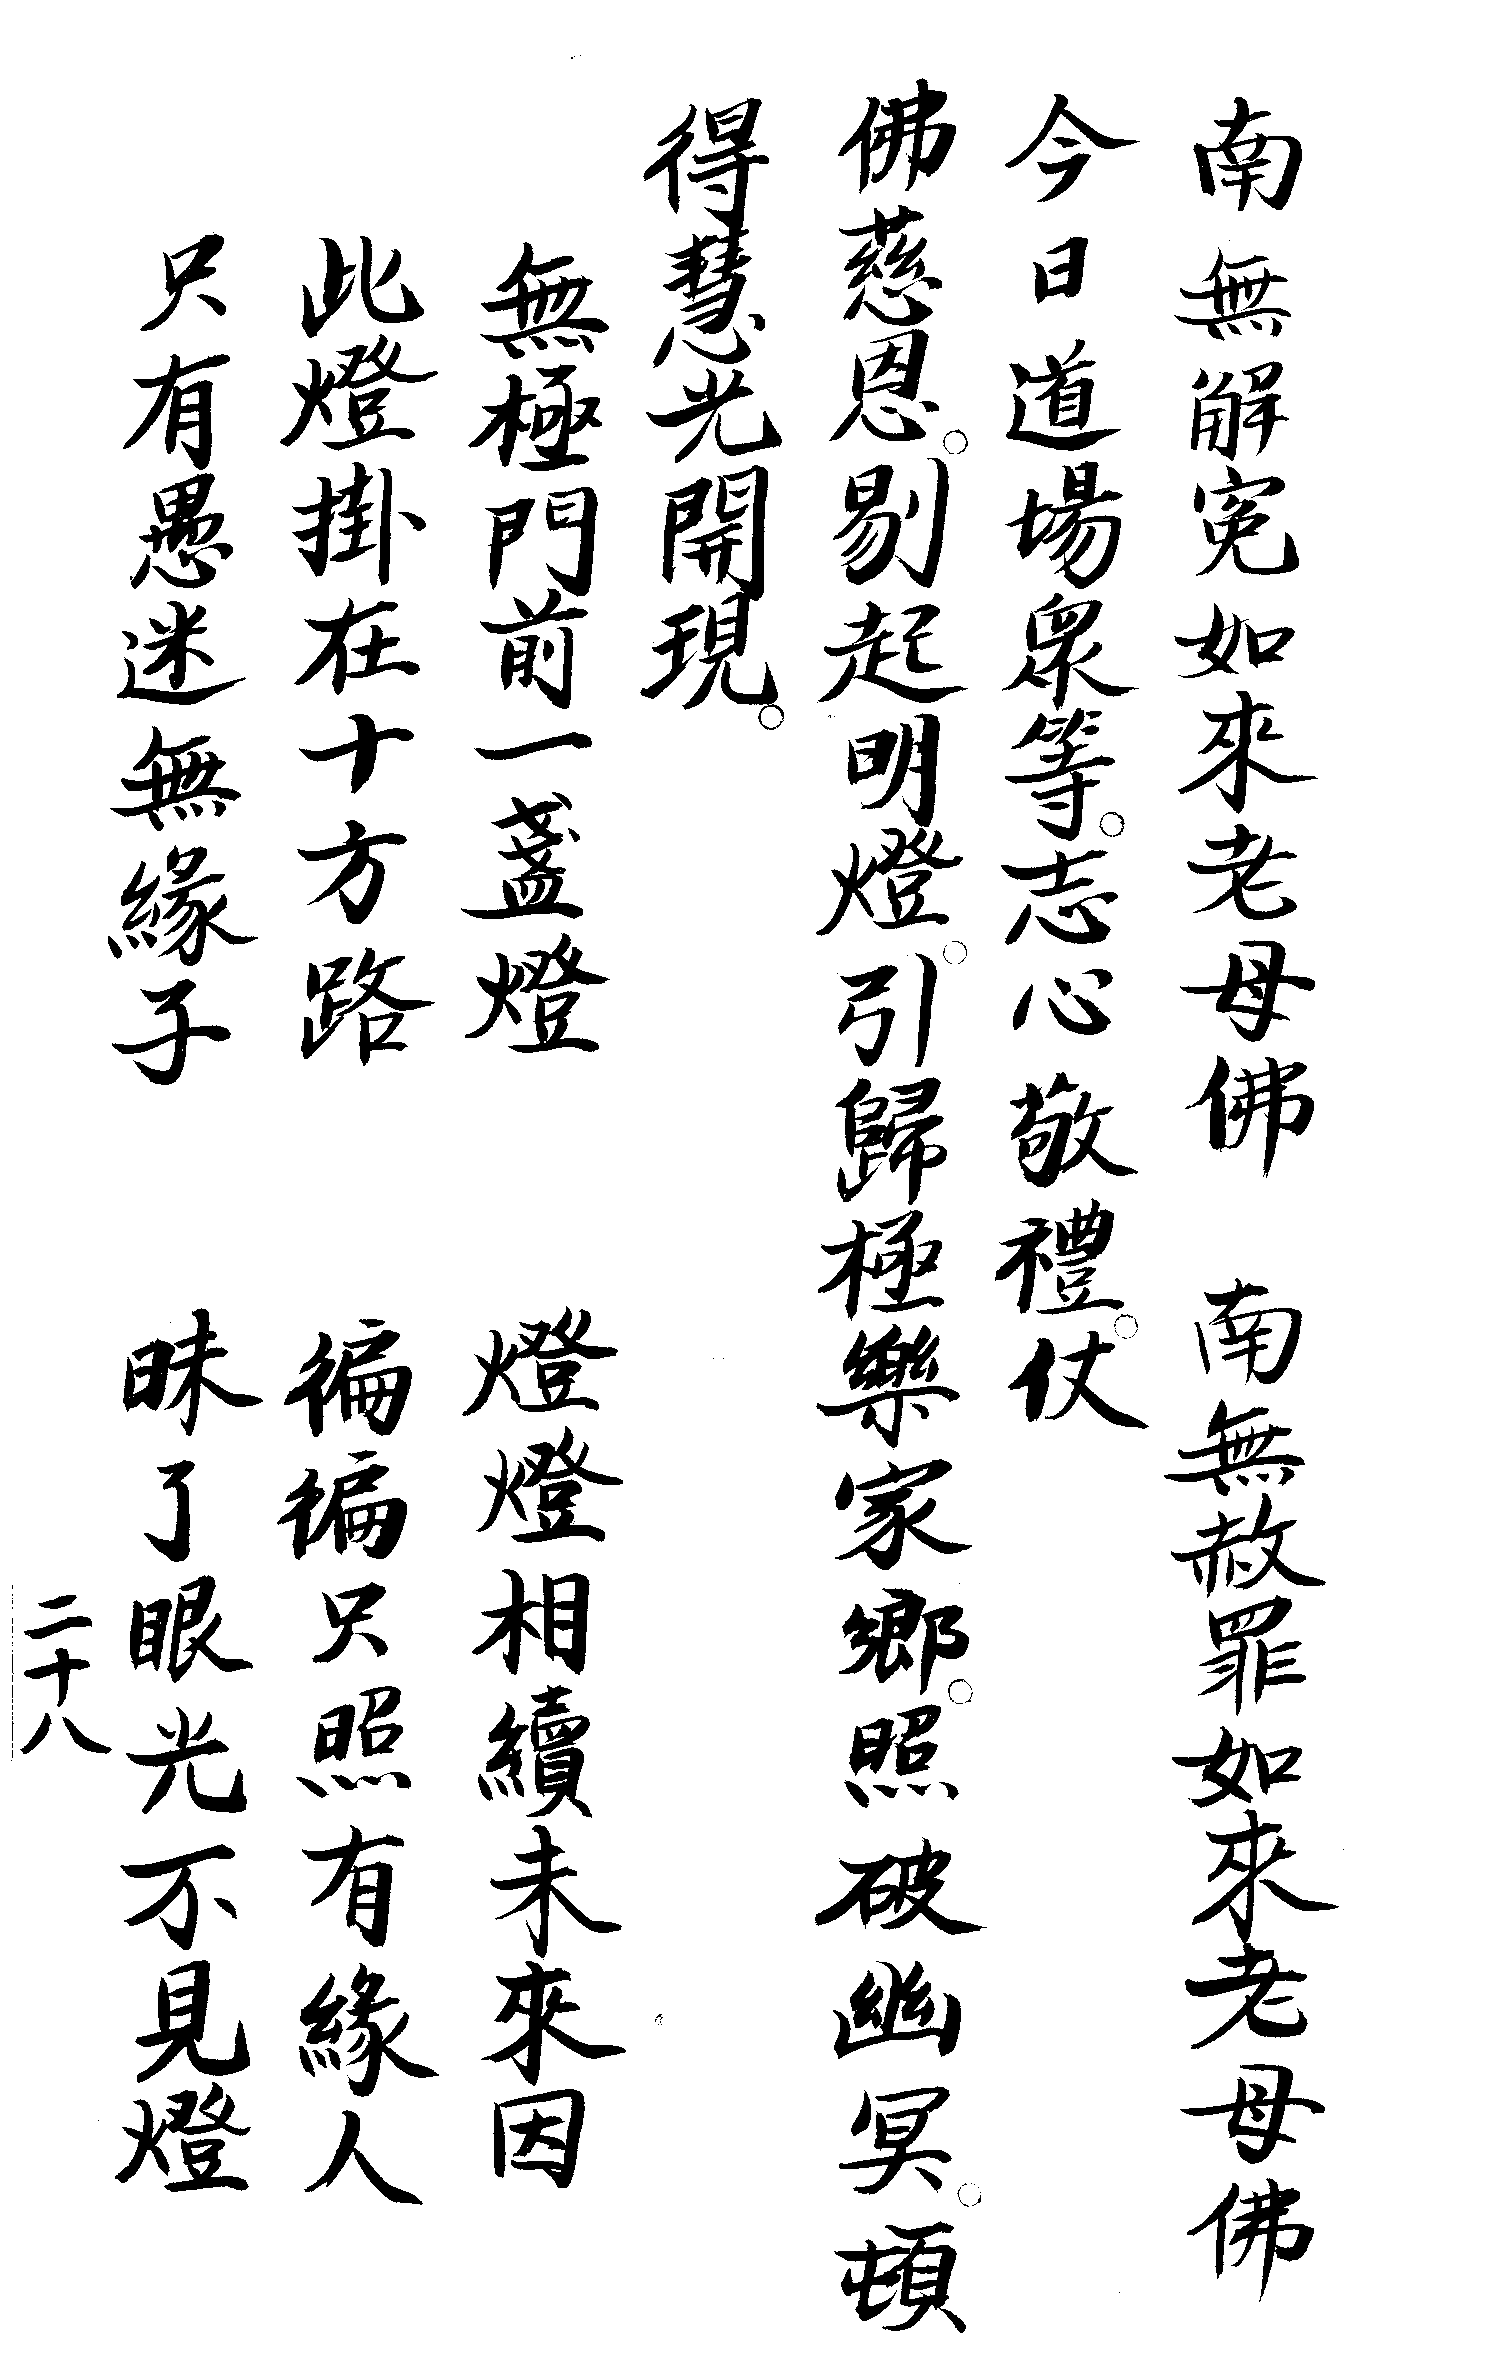 南無解冤如來老母佛　南無赦罪如來老母佛
今日道場眾等。志心敬禮。仗
佛慈恩。剔起明燈。引歸極樂家鄉。照破幽冥。頓
得慧光開現。
無極門前一盞燈　燈燈相續未來因
此燈掛在十方路　徧徧只照有緣人
只有愚迷無緣子　昧了眼光不見燈
二十八